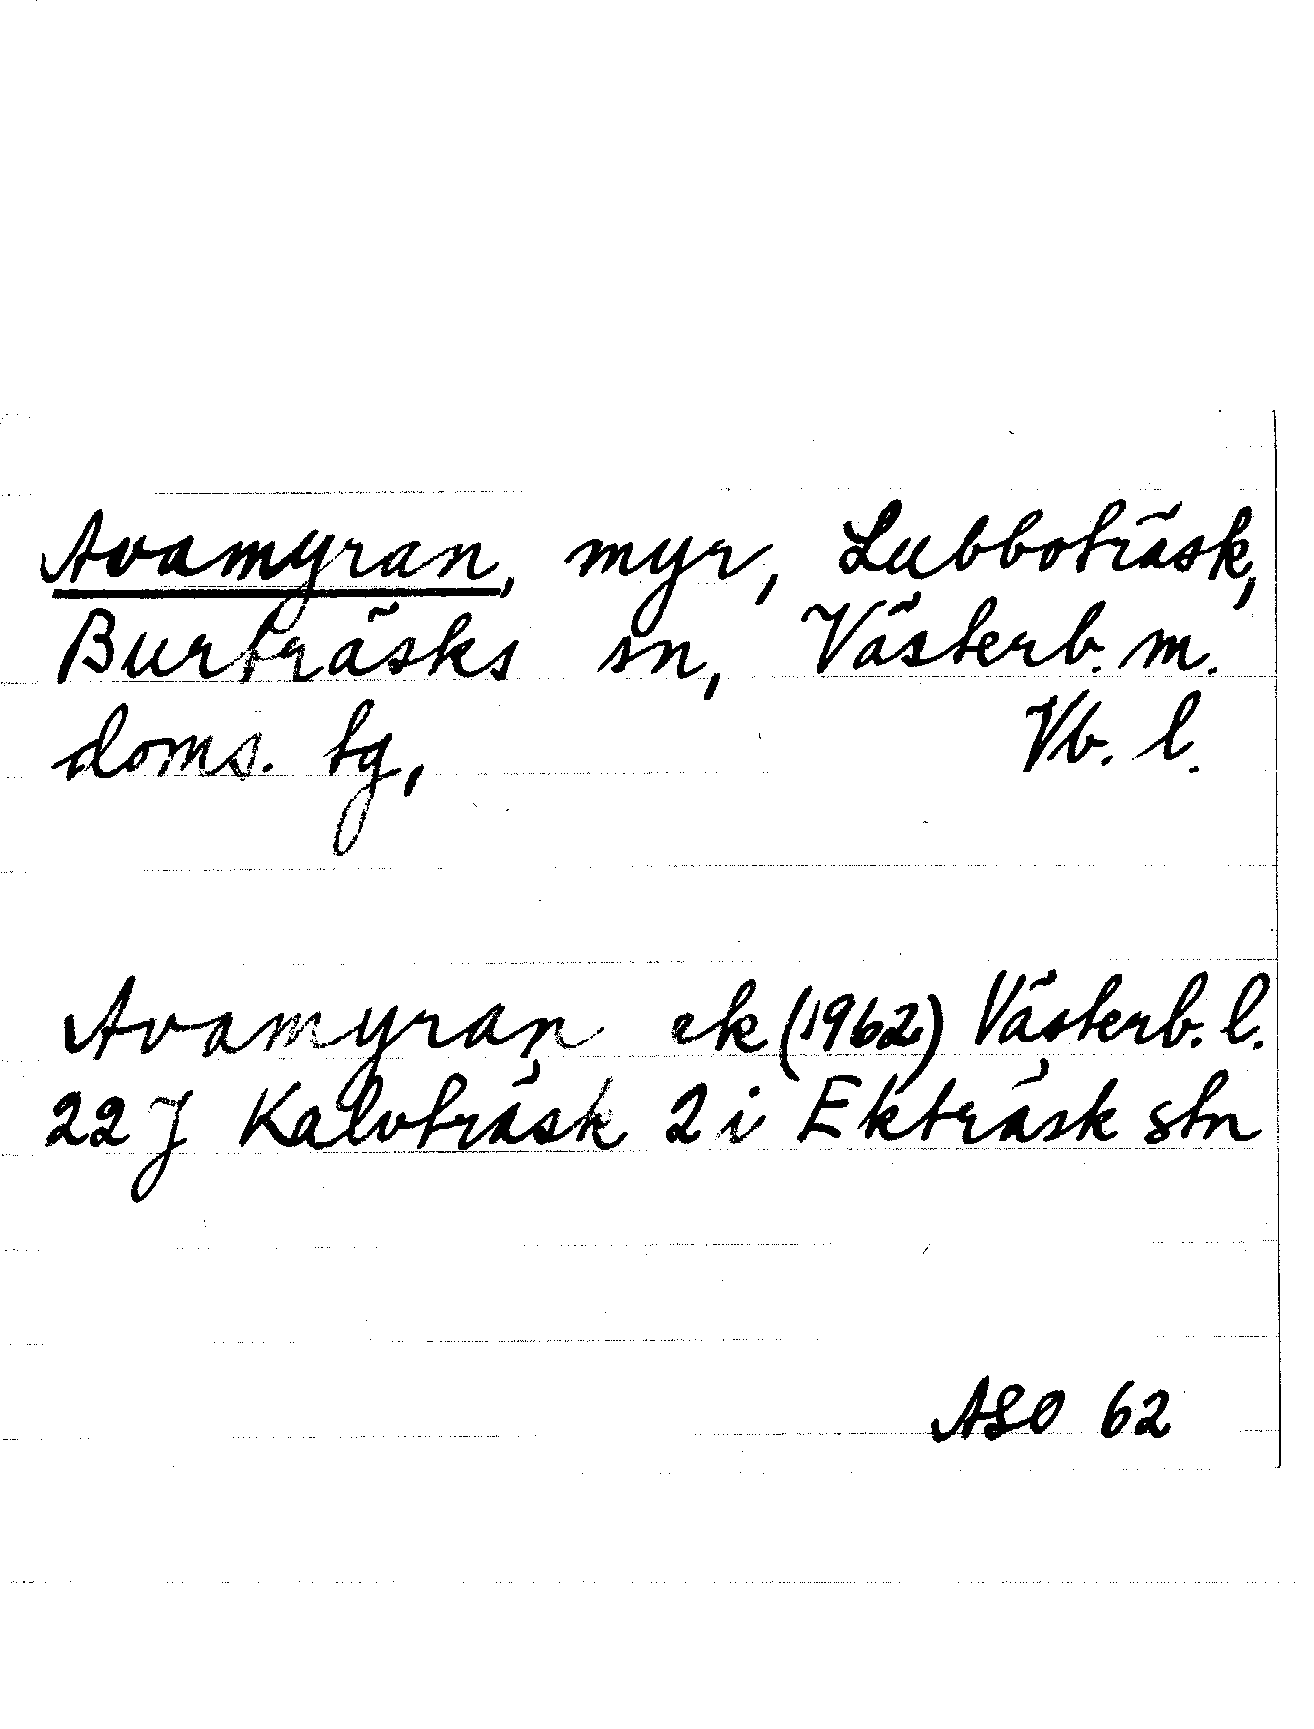 Avamyran, myr, Lubboträsk,
Burträsks sn, Västerb. m.
doms. tg, Vb. l.
Avamyran ek (1962) Västerb. l.
22 J Kalvträsk 2 i Ekträsk stn
ASO 62